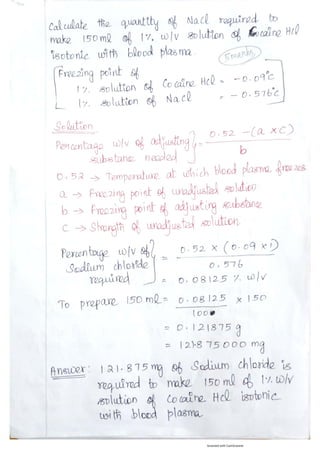 Calculate the quantity of NaCl required to
make 150 ml of 1% w/v solution of Cocaine HCl
isotonic with blood plasma.
5 marks
Freezing point of
1% solution of Cocaine HCl = -0.09°C
1% solution of NaCl = -0.576°C
Solution
Percentage w/v of adjusting substance needed } = 0.52 - (a × c) / b
0.52 → Temperature at which blood plasma freezes
a → Freezing point of unadjusted solution
b → Freezing point of adjusting substance
c → Strength of unadjusted solution
Percentage w/v of Sodium chloride required } = 0.52 × (0.09 × 1) / 0.576
= 0.08125 % w/v
To prepare 150 ml = 0.08125 × 150 / 100
= 0.121875 g
= 121.875000 mg
Answer: 121.875 mg of Sodium chloride is
required to make 150 ml of 1% w/v
solution of Cocaine HCl isotonic
with blood plasma.
Scanned with CamScanner